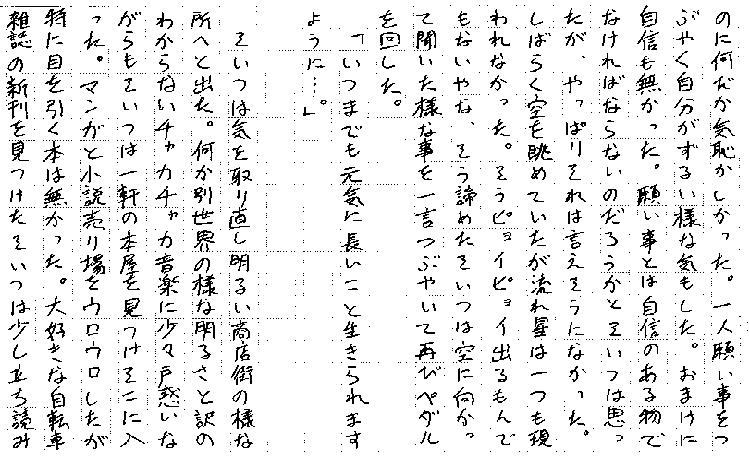 のに何だか気恥かしかった。一人願い事をつ
ぶやく自分がずるい様な気もした。おまけに
自信も無かった。願い事とは自信のある物で
なければならないのだろうかとそいつは思っ
たが、やっぱりそれは言えそうになかった。
しばらく空を眺めていたが流れ星は一つも現
われなかった。そうピョイピョイ出るもんで
もないやな、そう諦めたそいつは空に向かっ
て聞いた様な事を一言つぶやいて再びペダル
を回した。
「いつまでも元気に長いこと生きられます
ように…。」
そいつは気を取り直し明るい商店街の様な
所へと出た。何か別世界の様な明るさと訳の
わからないチャカチャカ音楽に少々戸惑いな
がらもそいつは一軒の本屋を見つけそこに入
った。マンガと小説売り場をウロウロしたが
特に目を引く本は無かった。大好きな自転車
雑誌の新刊を見つけたそいつは少し立ち読み